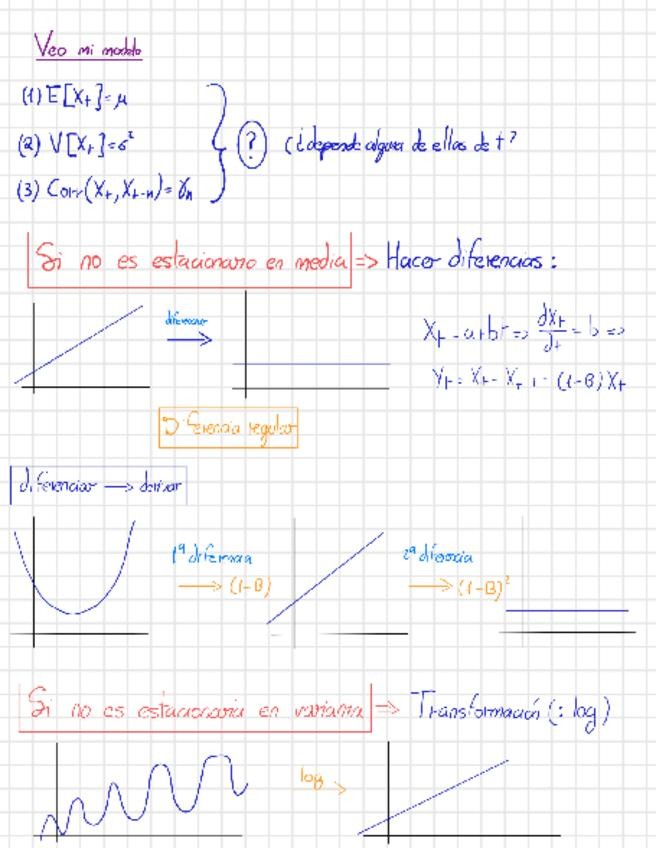 Veo mi modelo
(1) E[X_t]=μ
(2) V[X_t]=σ²
(3) Corr(X_t, X_t-n)=γ_n
? (¿depende alguna de ellas de t?
Si no es estacionario en media => Hacer diferencias:
diferenciar
X_t = a+bt => dX_t/dt = b =>
Y_t = X_t - X_t-1 = (1-B)X_t
Diferencia regular
diferenciar → derivar
1ª diferencia
→ (1-B)
2ª diferencia
→ (1-B)²
Si no es estacionaria en varianza => Transformación (: log)
log →